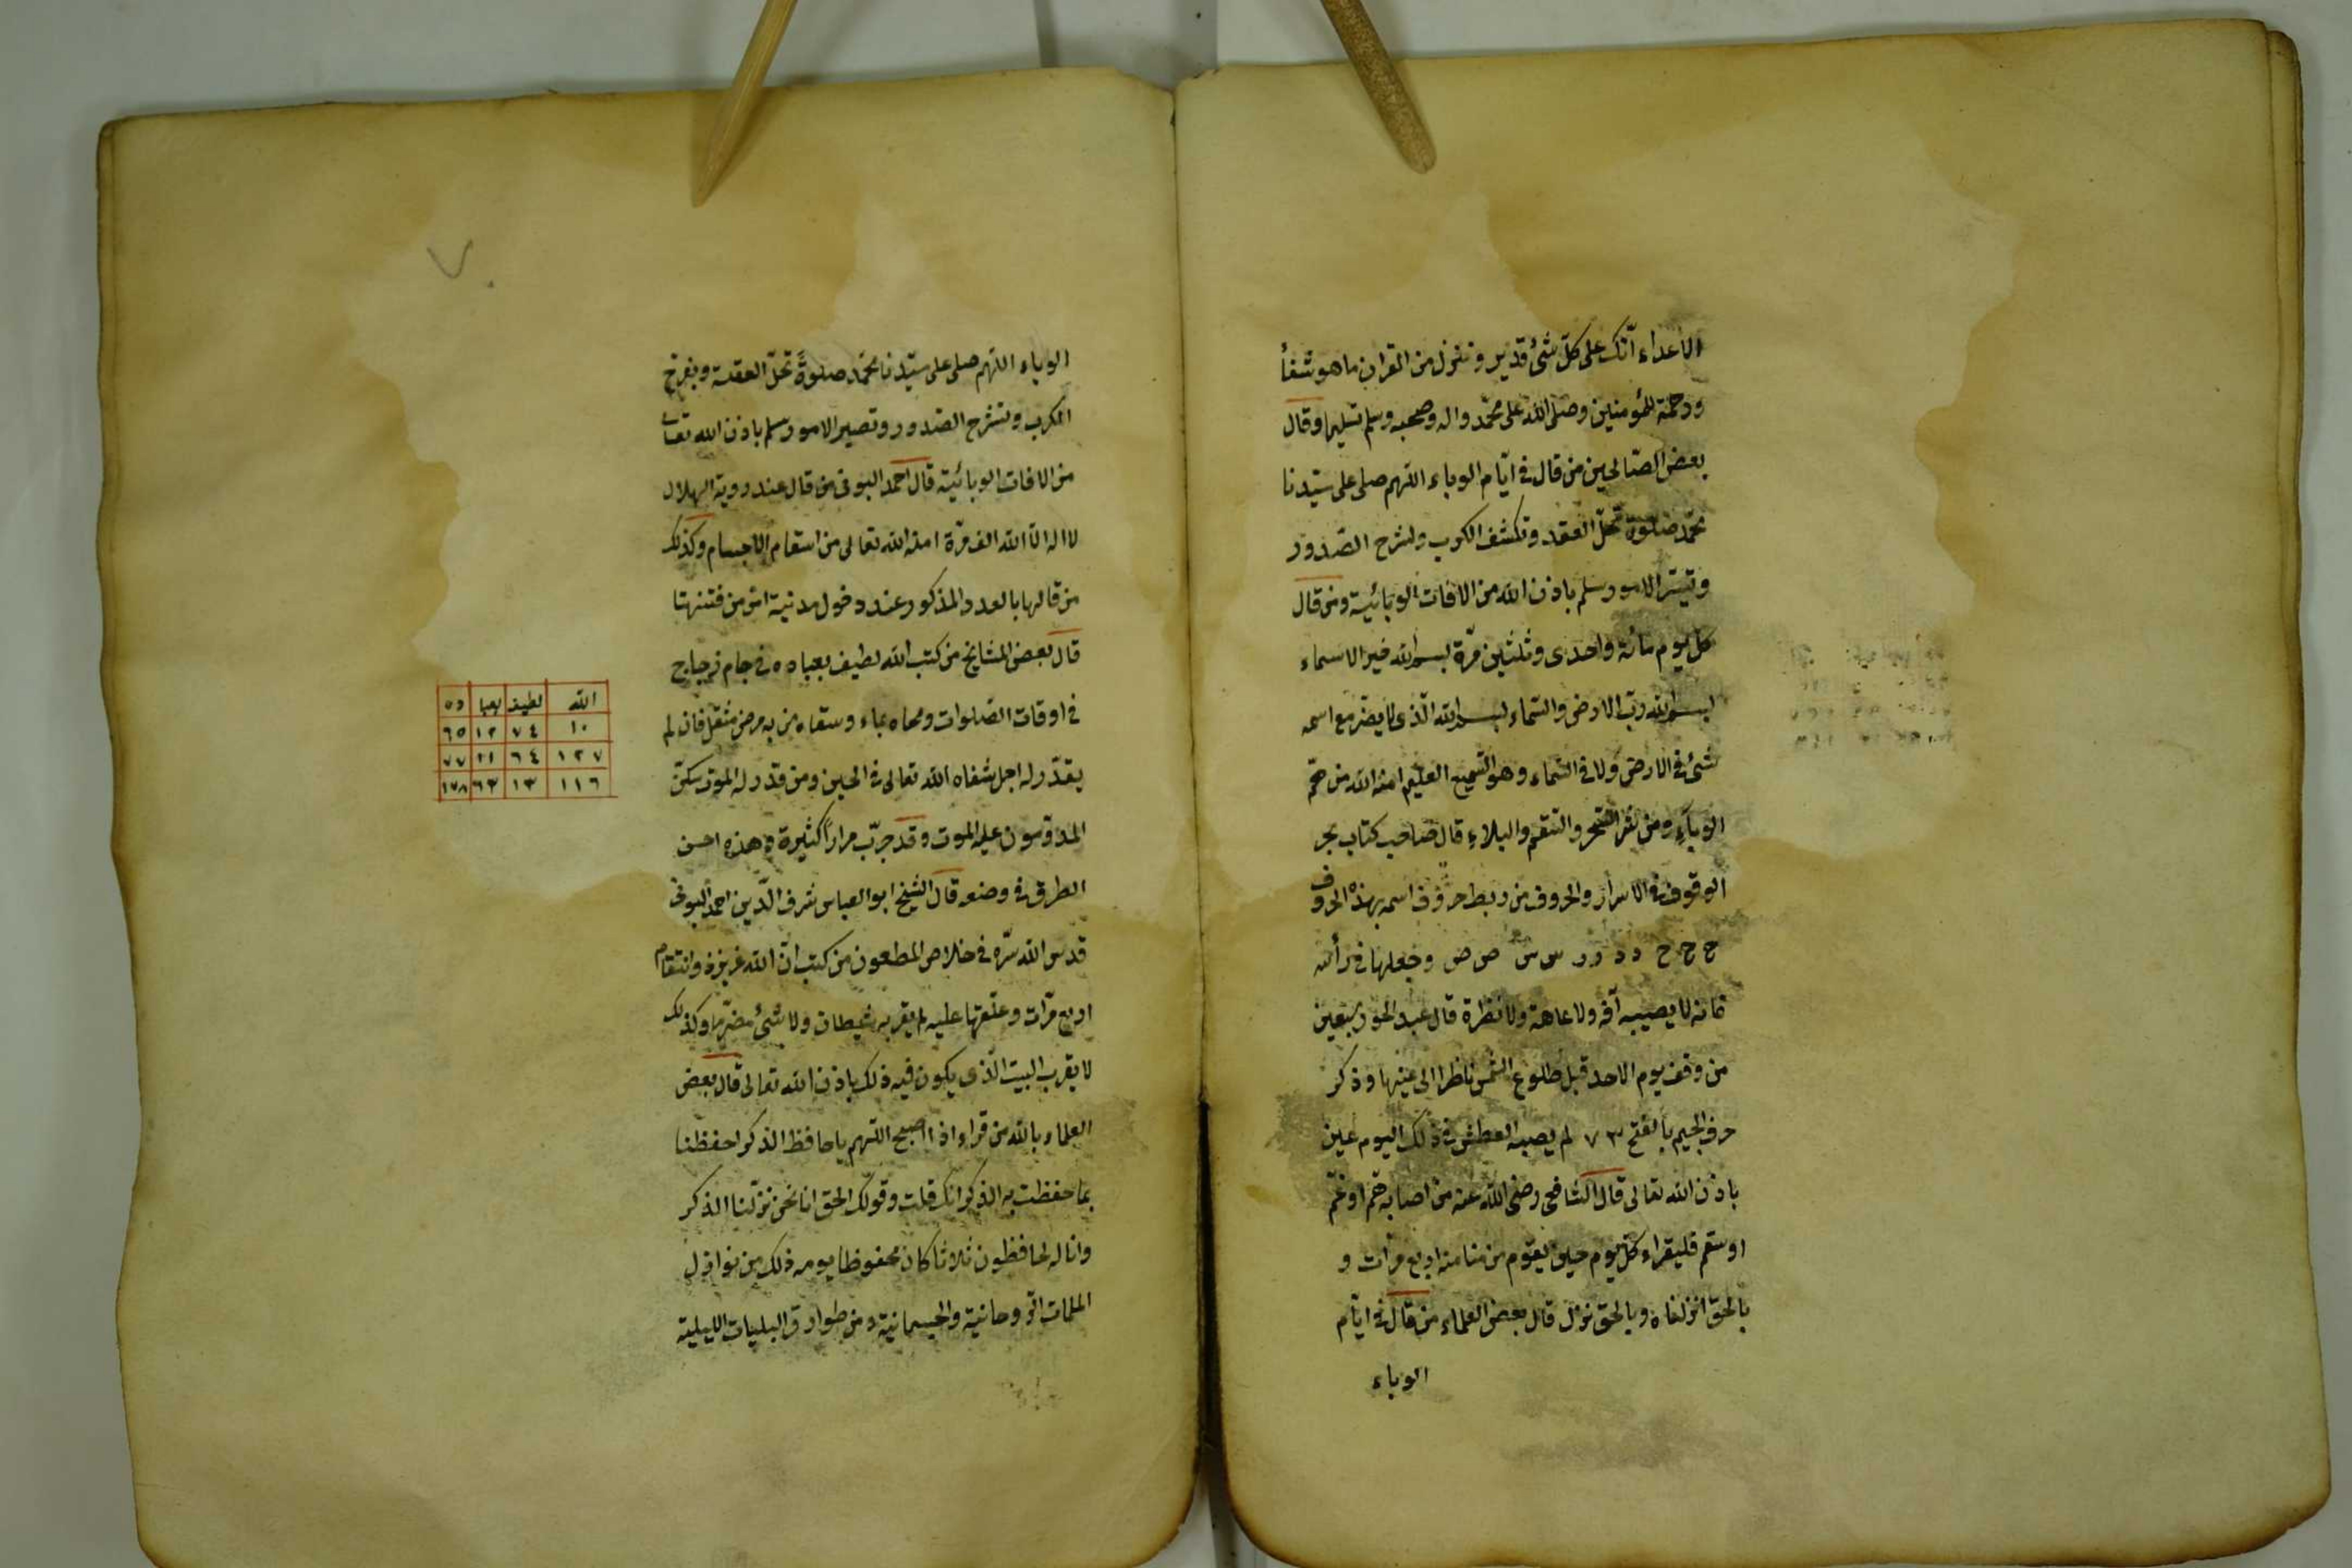 الاعداء انّك على كلّ شئ قدير وننزل من القران ما هو شفأ
ورحمة للمؤمنين وصلى الله على محمّد واله وصحبه وسلم تسليما وقال
بعض الصّالحين من قال فى ايّام الوباء اللهم صلى على سيّدنا
محمّد صلوة تحلّ العقد وتكشف الكرب وتشرح الصّدور
وتيسّر الامور وسلم باذن الله من الافات الوبائية ومن قال
كل يوم مائة واحدى وثلثين مرّة بسم الله خير الاسماء
بسم الله ربّ الارض والسّماء بسم الله الّذى لا يضرّ مع اسمه
شئ فى الارض ولا فى السّماء وهو السّميع العليم امنه الله من
الوباء ومن والنقم والبلاء قال صاحب كتاب بحر
الوقوف فى الاسرار والحروف من ربط حروف اسمه بهذه الحروف
ح ح ح د د ر ر س س ص ص وجعلها فى رأسه
فانه لا يصيبه آفة ولا عاهة ولا نظرة قال عبد الحق بن سبعين
من وقف يوم الاحد قبل طلوع الشمس ناظرا الى عينها وذكر
حرف الجيم بالفتح ٧٣ لم يصبه العطش فى ذلك اليوم
باذن الله تعالى قال الشافعى رضى الله عنه من اصابه همّ او غمّ
او سقم فليقراء كلّ يوم حين يقوم من منامه اربع مرّات و
بالحقّ انزلناه وبالحق نزل قال بعض العلماء من قال فى ايّام
الوباء
الوباء اللهم صلى على سيّدنا محمّد صلوةً تحلّ العقدة وتفرج
الكرب وتشرح الصّدور وتصير الامور سلم باذن الله تعالى
من الافات الوبائية قال احمد البونى من قال عند روية الهلال
لا اله الّا الله الف مرّة امنه الله تعالى من اسقام الاجسام وكذلك
من قالها بالعدد المذكور عند دخول مدينة امن من فتنتها
قال بعض المشايخ من كتب الله لطيف بعباده فى جام زجاج
فى اوقات الصّلوات ومحاه بماء وسقاه من به مرض مثقل فان لم
يقدّر له اجل شفاه الله تعالى فى الحين ومن قدر له الموت سكن
عليه الموت وقد جرّب مراراً كثيرة وهذه احسن
الطرق فى وضعه قال الشيخ ابو العباس شرف الدّين احمد البونى
قدس الله سرّه فى خلاص المطعون من كتب انّ الله عزيز ذو انتقام
اربع مرّات وعلّقها عليه لم يقربه شيطان ولا شئ مضرّ وكذلك
لا يقرب البيت الّذى يكون فيه ذلك باذن الله تعالى قال بعض
العلماء بالله من قراء اذا اصبح اللهم يا حافظ الذكر احفظنا
بما حفظت به الذكر انك قلت وقولك الحق انا نحن نزّلنا الذكر
وانا له لحافظون ثلاثا كان محفوظا يومه ذلك من نوازل
الملمات الرّوحانية والجسمانية ومن طوارق البليات الليلية
الله لطيف بعبا ده
١٠ ٧٤ ١٢ ٦٥
١٢٧ ٦٤ ١١ ٧٧
١١٦ ١٣ ٦٣ ١٧٨